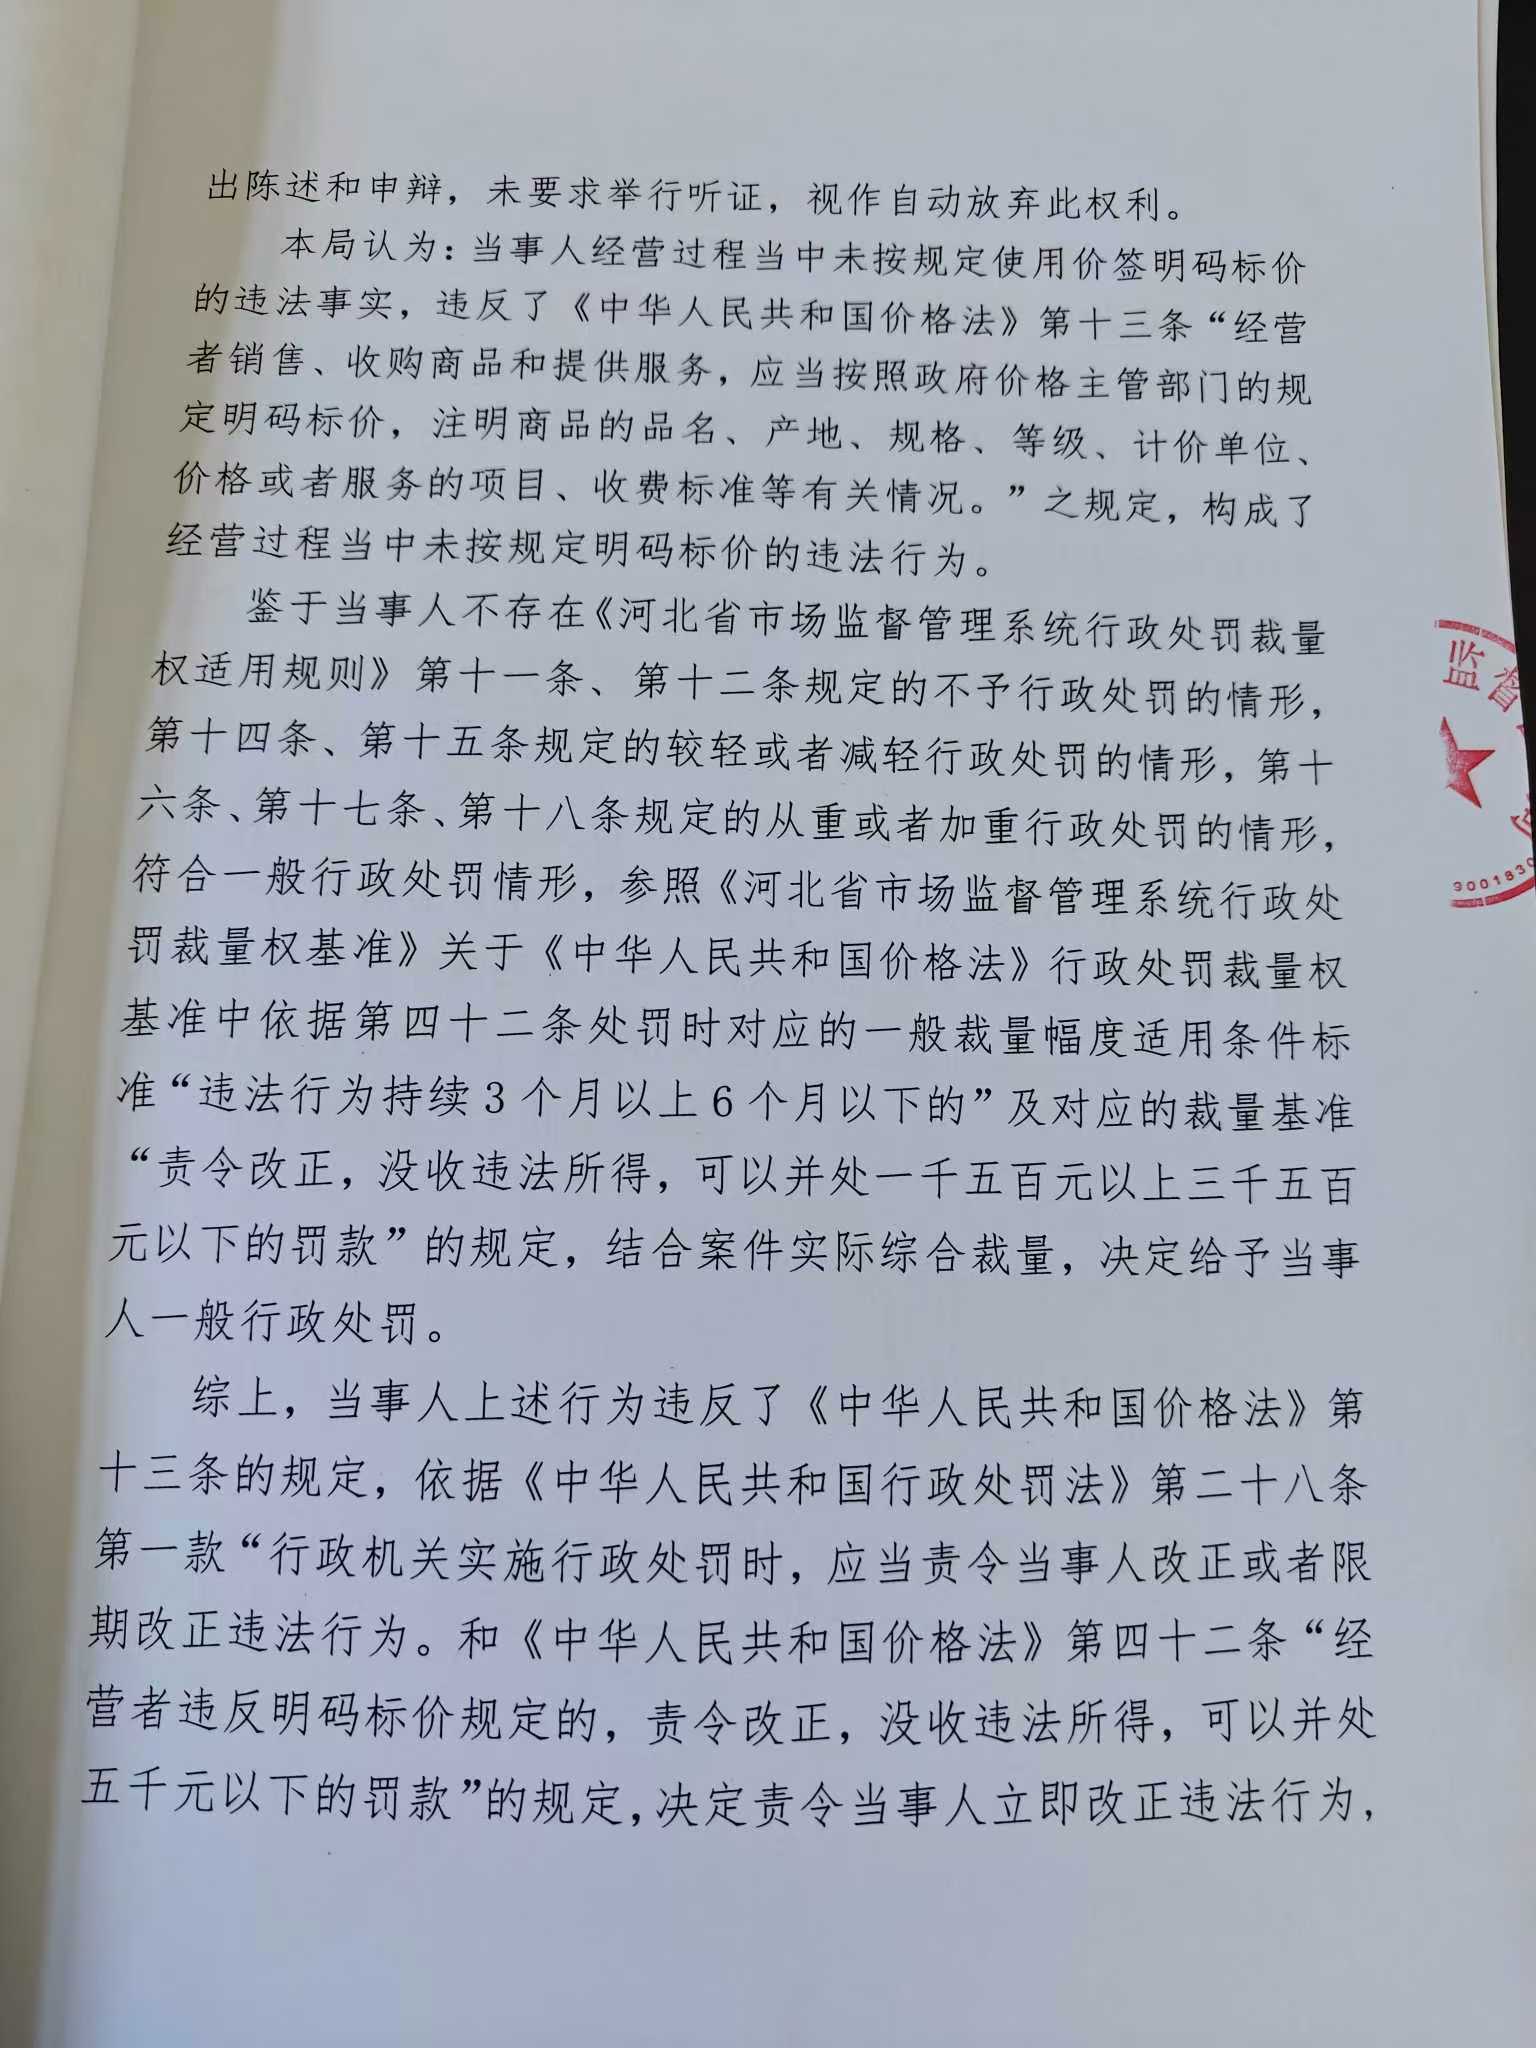 出陈述和申辩，未要求举行听证，视作自动放弃此权利。
本局认为：当事人经营过程当中未按规定使用价签明码标价
的违法事实，违反了《中华人民共和国价格法》第十三条“经营
者销售、收购商品和提供服务，应当按照政府价格主管部门的规
定明码标价，注明商品的品名、产地、规格、等级、计价单位、
价格或者服务的项目、收费标准等有关情况。”之规定，构成了
经营过程当中未按规定明码标价的违法行为。
鉴于当事人不存在《河北省市场监督管理系统行政处罚裁量
权适用规则》第十一条、第十二条规定的不予行政处罚的情形，
第十四条、第十五条规定的较轻或者减轻行政处罚的情形，第十
六条、第十七条、第十八条规定的从重或者加重行政处罚的情形，
符合一般行政处罚情形，参照《河北省市场监督管理系统行政处
罚裁量权基准》关于《中华人民共和国价格法》行政处罚裁量权
基准中依据第四十二条处罚时对应的一般裁量幅度适用条件标
准“违法行为持续3个月以上6个月以下的”及对应的裁量基准
“责令改正，没收违法所得，可以并处一千五百元以上三千五百
元以下的罚款”的规定，结合案件实际综合裁量，决定给予当事
人一般行政处罚。
综上，当事人上述行为违反了《中华人民共和国价格法》第
十三条的规定，依据《中华人民共和国行政处罚法》第二十八条
第一款“行政机关实施行政处罚时，应当责令当事人改正或者限
期改正违法行为。和《中华人民共和国价格法》第四十二条“经
营者违反明码标价规定的，责令改正，没收违法所得，可以并处
五千元以下的罚款”的规定，决定责令当事人立即改正违法行为，
监督
300183